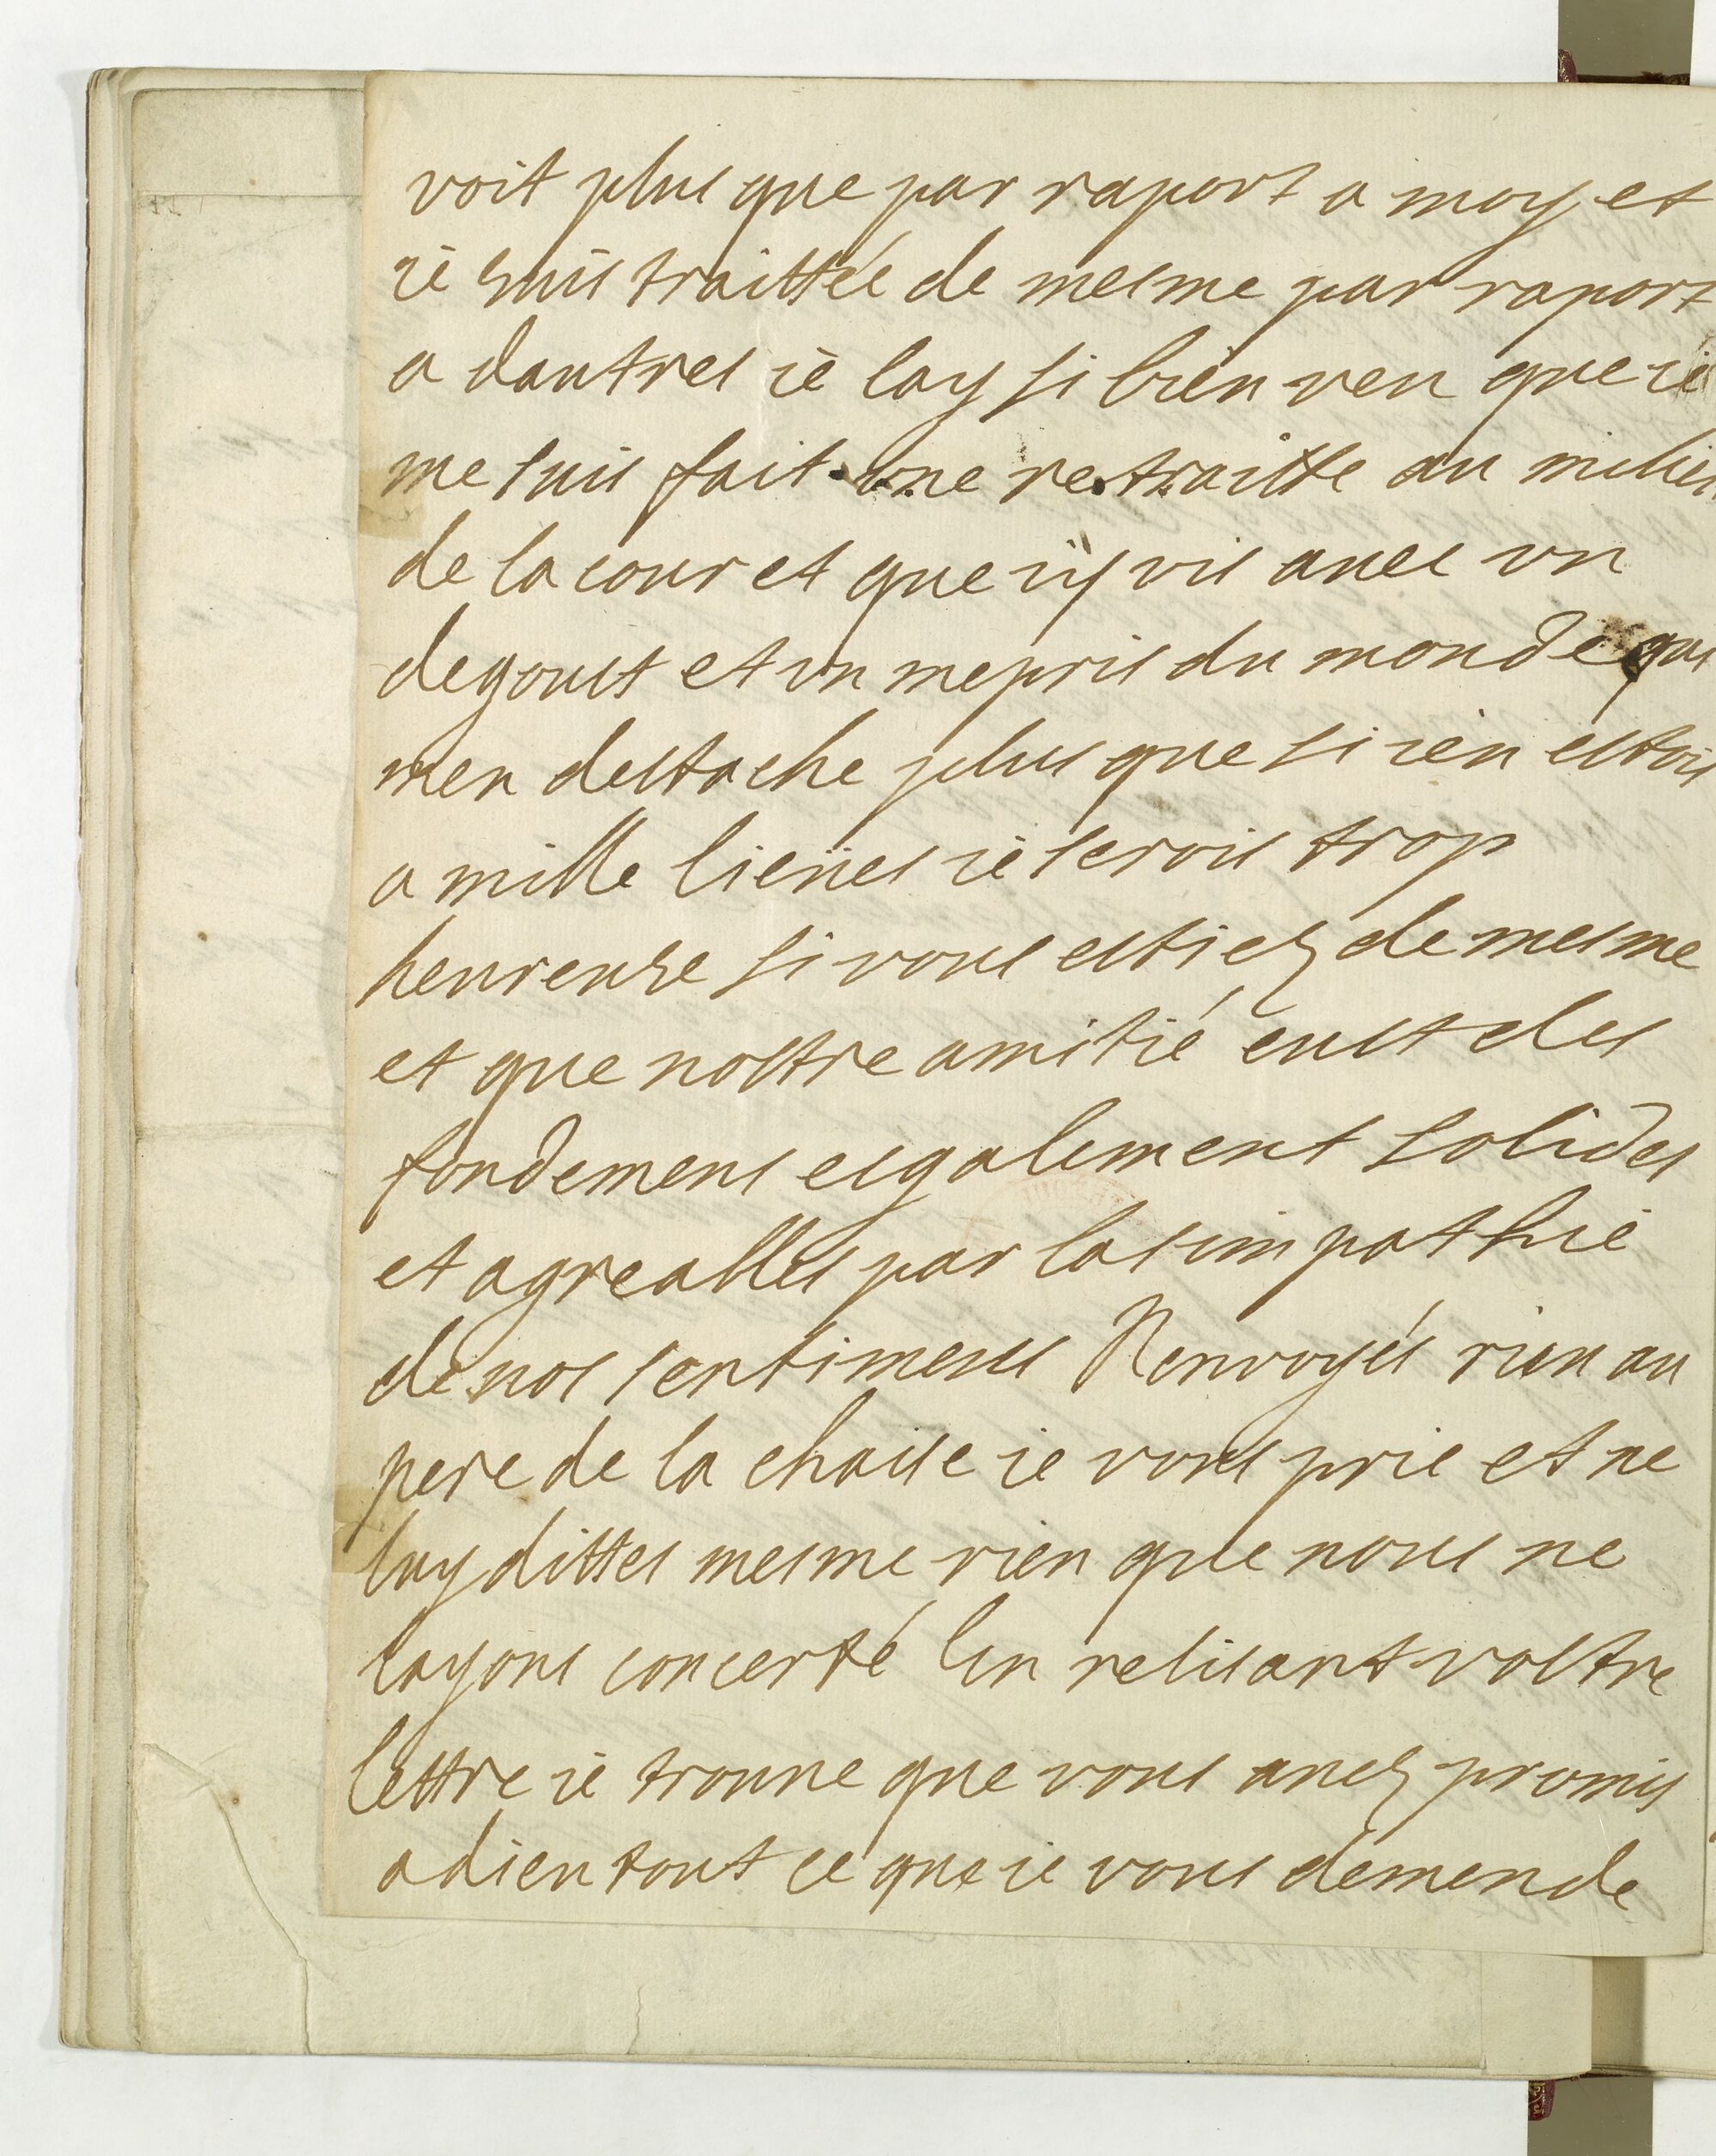 voit plus que par raport a moy et
ie suis traittée de mesme par raport
a dautres ie lay si bien veu que ie
me suis fait une retraitte au milieu
de la cour et que iy vis auec vn
degoust et vn mepris du monde qui
men destache plus que si ien estois
a mille lieües ie serois trop
heureuse si vous estiez de mesme
et que nostre amitié eust des
fondemens esgalement solides
et agreables par la simpathie
de nos sentimens Nenvoyés rien au
pere de la chaise ie vous prie et ne
luy dittes mesme rien que nous ne
layons concerté En relisant vostre
lettre ie trouue que vous auez promis
a dieu tout ce que ie vous demende